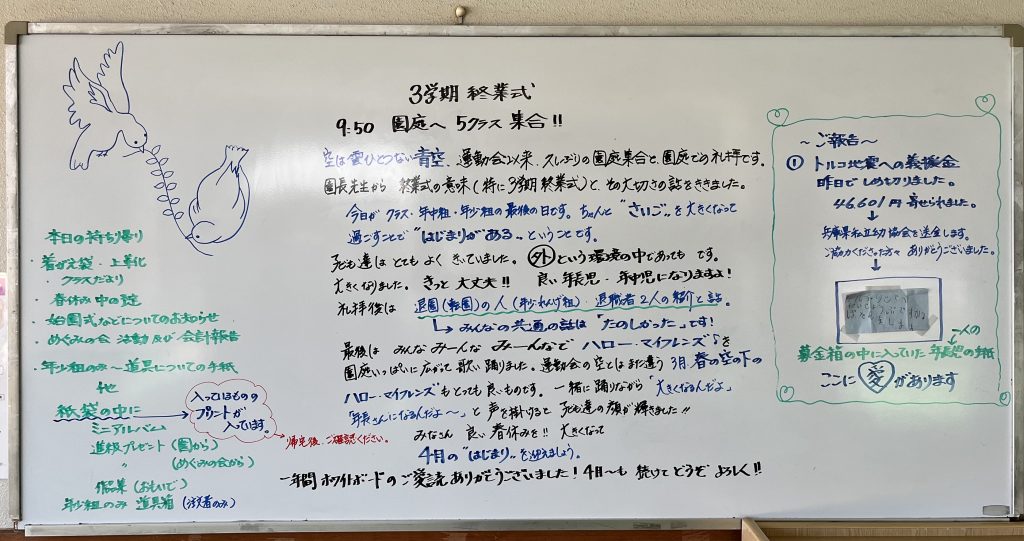 3学期 終業式
9:50 園庭へ 5クラス 集合!!
空は雲ひとつない青空、運動会以来、久しぶりの園庭集合と、園庭での礼拝です。
園長先生から 終業式の意味(特に3学期終業式)と、その大切さの話をききました。
今日がクラス・年中組・年少組の最後の日です。ちゃんと"さいご"を大きくなって
過ごすことで"はじまりがある"ということです。
子ども達はとてもよく きいていました。外という環境の中であっても です。
大きくなりました。きっと大丈夫!! 良い年長児・年中児になりますよ!
礼拝後は 退園(転園)の人(年少れんげ組)・退職者2人の紹介と話。
→みんなの共通の話は「たのしかった」です!
最後は みんな みーんな みーんなで ハロー・マイフレンズを
園庭いっぱいに広がって歌い踊りました。運動会の空とはまた違う 3月、春の空の下の
ハロー・マイフレンズもとっても良いものです。一緒に踊りながら「大きくなるんだよ」
「年長さんになるんだよ〜」と声を掛けると子ども達の顔が輝きました!!
みなさん 良い春休みを!! 大きくなって
4月の"はじまり"を迎えましょう。
一年間ホワイトボードのご愛読ありがとうございました!4月〜も 続けてどうぞ よろしく!!
本日の持ち帰り
・着がえ袋・上靴
・クラスだより
・春休み中の
・始園式などについてのお知らせ
・めぐみの会 活動及び会計報告
・年少組のみ〜道具についての手紙
他
紙袋の中に
入っているものの
プリントが
入っています。
帰宅後、ご確認ください。
ミニアルバム
進級プレゼント(園から)
〃 (めぐみの会から)
作品集(おもいで)
年少組のみ 道具箱
〜ご報告〜
① トルコ地震への義援金
昨日でしめ切りました。
46,601円 寄せられました。
↓
兵庫県私立幼協会を送金します。
ご協力くださった方々 ありがとうございました。
↓
一人の
募金箱の中に入っていた年長児の手紙
ここに愛があります